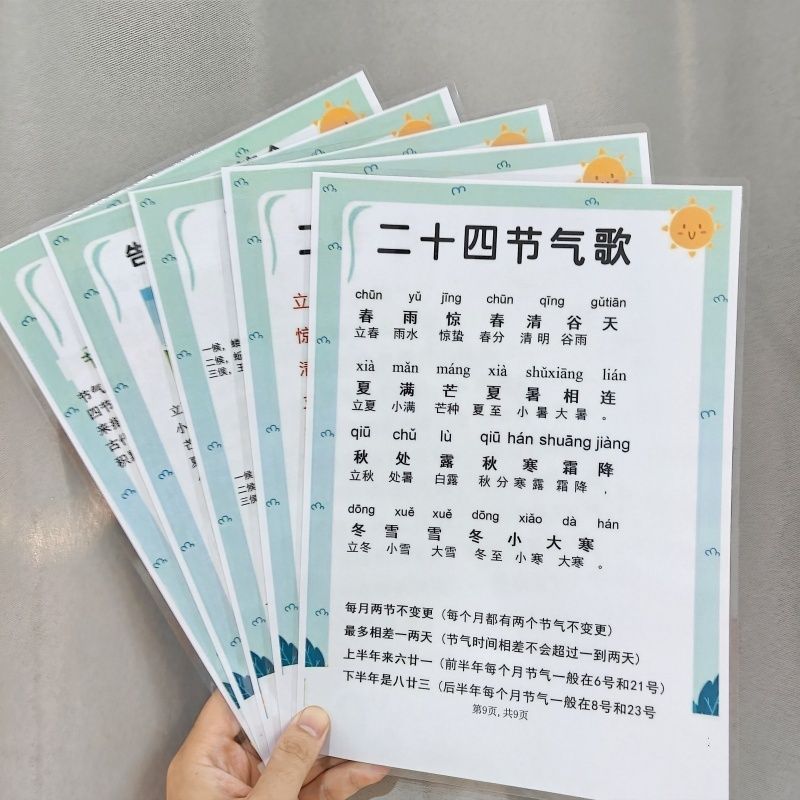 二十四节气歌
chūn yǔ jīng chūn qīng gǔtiān
春 雨 惊 春 清 谷 天
立春 雨水 惊蛰 春分 清明 谷雨
xià mǎn máng xià shǔxiāng lián
夏 满 芒 夏 暑 相 连
立夏 小满 芒种 夏至 小暑大暑。
qiū chǔ lù qiū hán shuāng jiàng
秋 处 露 秋 寒 霜 降
立秋 处暑 白露 秋分寒露 霜降,
dōng xuě xuě dōng xiǎo dà hán
冬 雪 雪 冬 小 大 寒
立冬 小雪 大雪 冬至 小寒 大寒。
每月两节不变更(每个月都有两个节气不变更)
最多相差一两天(节气时间相差不会超过一到两天)
上半年来六廿一(前半年每个月节气一般在6号和21号)
下半年是八廿三(后半年每个月节气一般在8号和23号
第9页,共9页
立
惊
清
一候,
二候,
三候,
一候
二候
三候
立
小
芒
夏
节气
四节
来
古
积